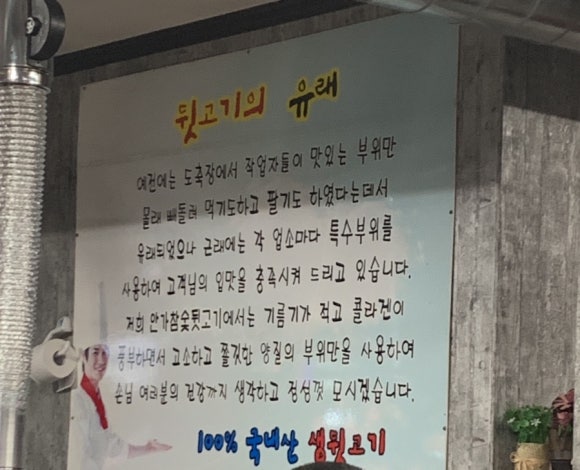 뒷고기의 유래
예전에는 도축장에서 작업자들이 맛있는 부위만
몰래 빼돌려 먹기도하고 팔기도 하였다는데서
유래되었으나 근래에는 각 업소마다 특수부위를
사용하여 고객님의 입맛을 충족시켜 드리고 있습니다.
저희 안가참숯뒷고기에서는 기름기가 적고 콜라겐이
풍부하면서 고소하고 쫄깃한 양질의 부위만을 사용하여
손님 여러분의 건강까지 생각하고 정성껏 모시겠습니다.
100% 국내산 생뒷고기